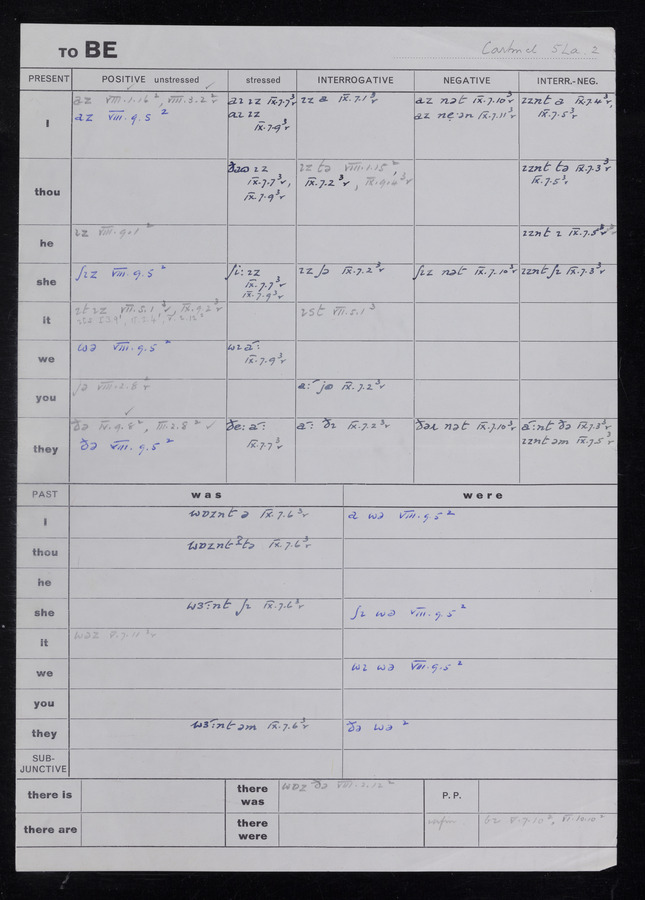 TO BE
Cartmel 5La. 2
PRESENT POSITIVE unstressed stressed INTERROGATIVE NEGATIVE INTERR.-NEG.
I
az VIII.1.16², VIII.3.2²r
az VIII.9.5²
aɪ ɪz IX.7.7³r
aɪ ɪz
IX.7.9³r
ɪz a IX.7.1³r
az nət IX.7.10³r
IX.7.11³r
ɪznt a IX.7.4³r,
IX.7.5³r
thou
ɪz
IX.7.7³r,
IX.7.9³r
ɪz tə VIII.1.15²
IX.7.2³r,
ɪznt tə IX.7.3³r
IX.7.5³r
he
ɪz VIII.9.1²
ɪznt ɪ IX.7.5³r
she
ʃɪz VIII.9.5²
ʃi: ɪz
IX.7.7³r
IX.7.9³r
ɪz ʃə IX.7.2³r
ʃɪz nət IX.7.10³r
ɪznt ʃɪ IX.7.3³r
it
ɪt ɪz VII.5.1³r, IX.9.2³r
ɪst VII.5.1³
we
wə VIII.9.5²
wɪ a:
IX.7.9³r
you
jə VIII.2.8²r
a: jə IX.7.2³r
they
ðə IV.9.8², III.2.8²
ðə VIII.9.5²
ðe: a:
IX.7.7³r
a: ðɪ IX.7.2³r
nət IX.7.10³r
a:nt ðə IX.7.3³r
ɪznt əm IX.7.5³r
PAST was were
I wɒznt ə IX.7.6³r a wə VIII.9.5²
thou wɒznt tə IX.7.6³r
he
she wɜ:nt ʃɪ IX.7.6³r ʃɪ wə VIII.9.5²
it wəz V.7.11³r
we wɪ wə VIII.9.5²
you
they wɜ:nt əm IX.7.6³r ðə wə ²
SUB-
JUNCTIVE
there is there was wɒz ðə VIII.2.12² P.P.
there are there were infin bɪ V.7.10², VI.10.10²